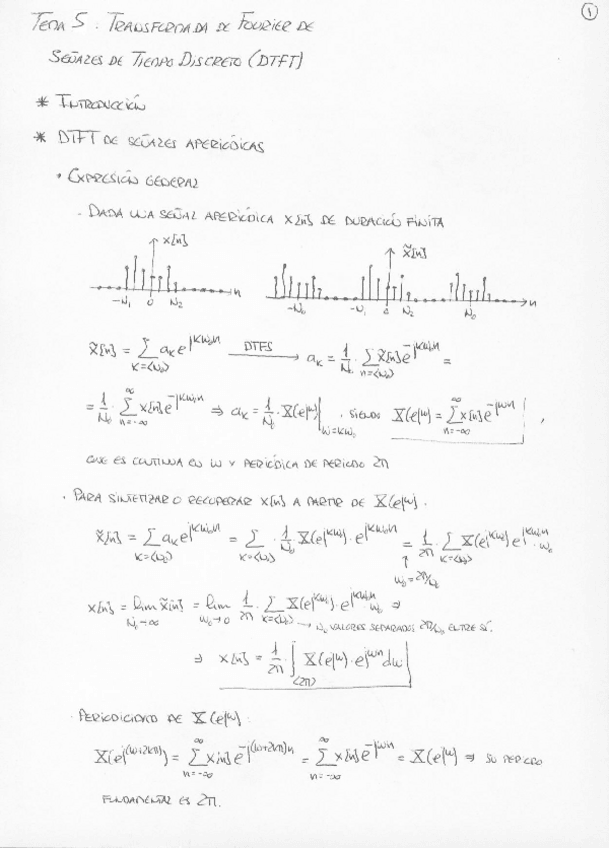 1
TEMA 5: TRANSFORMADA DE FOURIER DE
SEÑALES DE TIEMPO DISCRETO (DTFT)
* INTRODUCCIÓN
* DTFT DE SEÑALES APERIÓDICAS
· EXPRESIÓN GENERAL
- DADA UNA SEÑAL APERIÓDICA x[n] DE DURACIÓN FINITA
x[n] x̃[n]
-N₁ 0 N₂ n -N₀ -N₁ 0 N₂ N₀ n
x̃[n] = Σ_{k=<N₀>} aₖ e^{jkω₀n} DTFS → aₖ = 1/N₀ · Σ_{n=<N₀>} x̃[n] e^{-jkω₀n} =
= 1/N₀ · Σ_{n=-∞}^{∞} x[n] e^{-jkω₀n} ⇒ aₖ = 1/N₀ · X(e^{jω})|_{ω=kω₀}, SIENDO X(e^{jω}) = Σ_{n=-∞}^{∞} x[n] e^{-jωn},
QUE ES CONTINUA EN ω Y PERIÓDICA DE PERIODO 2π
· PARA SINTETIZAR O RECUPERAR x[n] A PARTIR DE X(e^{jω}).
x̃[n] = Σ_{k=<N₀>} aₖ e^{jkω₀n} = Σ_{k=<N₀>} · 1/N₀ · X(e^{jkω₀}) · e^{jkω₀n} = 1/2π · Σ_{k=<N₀>} X(e^{jkω₀}) e^{jkω₀n} · ω₀
↑
ω₀ = 2π/N₀
x[n] = lim_{N₀→∞} x̃[n] = lim_{ω₀→0} 1/2π · Σ_{k=<N₀>} X(e^{jkω₀}) · e^{jkω₀n} · ω₀ ⇒
→ N₀ VALORES SEPARADOS 2π/N₀ ENTRE SÍ.
⇒ x[n] = 1/2π · ∫_{<2π>} X(e^{jω}) · e^{jωn} dω
· PERIODICIDAD DE X(e^{jω}):
X(e^{j(ω+2kπ)}) = Σ_{n=-∞}^{∞} x[n] e^{-j(ω+2kπ)n} = Σ_{n=-∞}^{∞} x[n] e^{-jωn} = X(e^{jω}) ⇒ SU PERIODO
FUNDAMENTAL ES 2π.